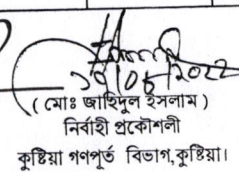 ১৭/০৫/২০২২
(মোঃ জাহিদুল ইসলাম)
নির্বাহী প্রকৌশলী
কুষ্টিয়া গণপূর্ত বিভাগ, কুষ্টিয়া।